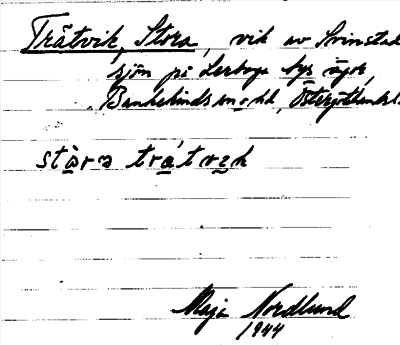 Tråtvik, Stora, vik av Svinstad
sjön på Lerboga bys ägor,
Bankekinds sn o. hd, Östergötlands l.
stòra tra̍tvek
Maja Nordlund
1944